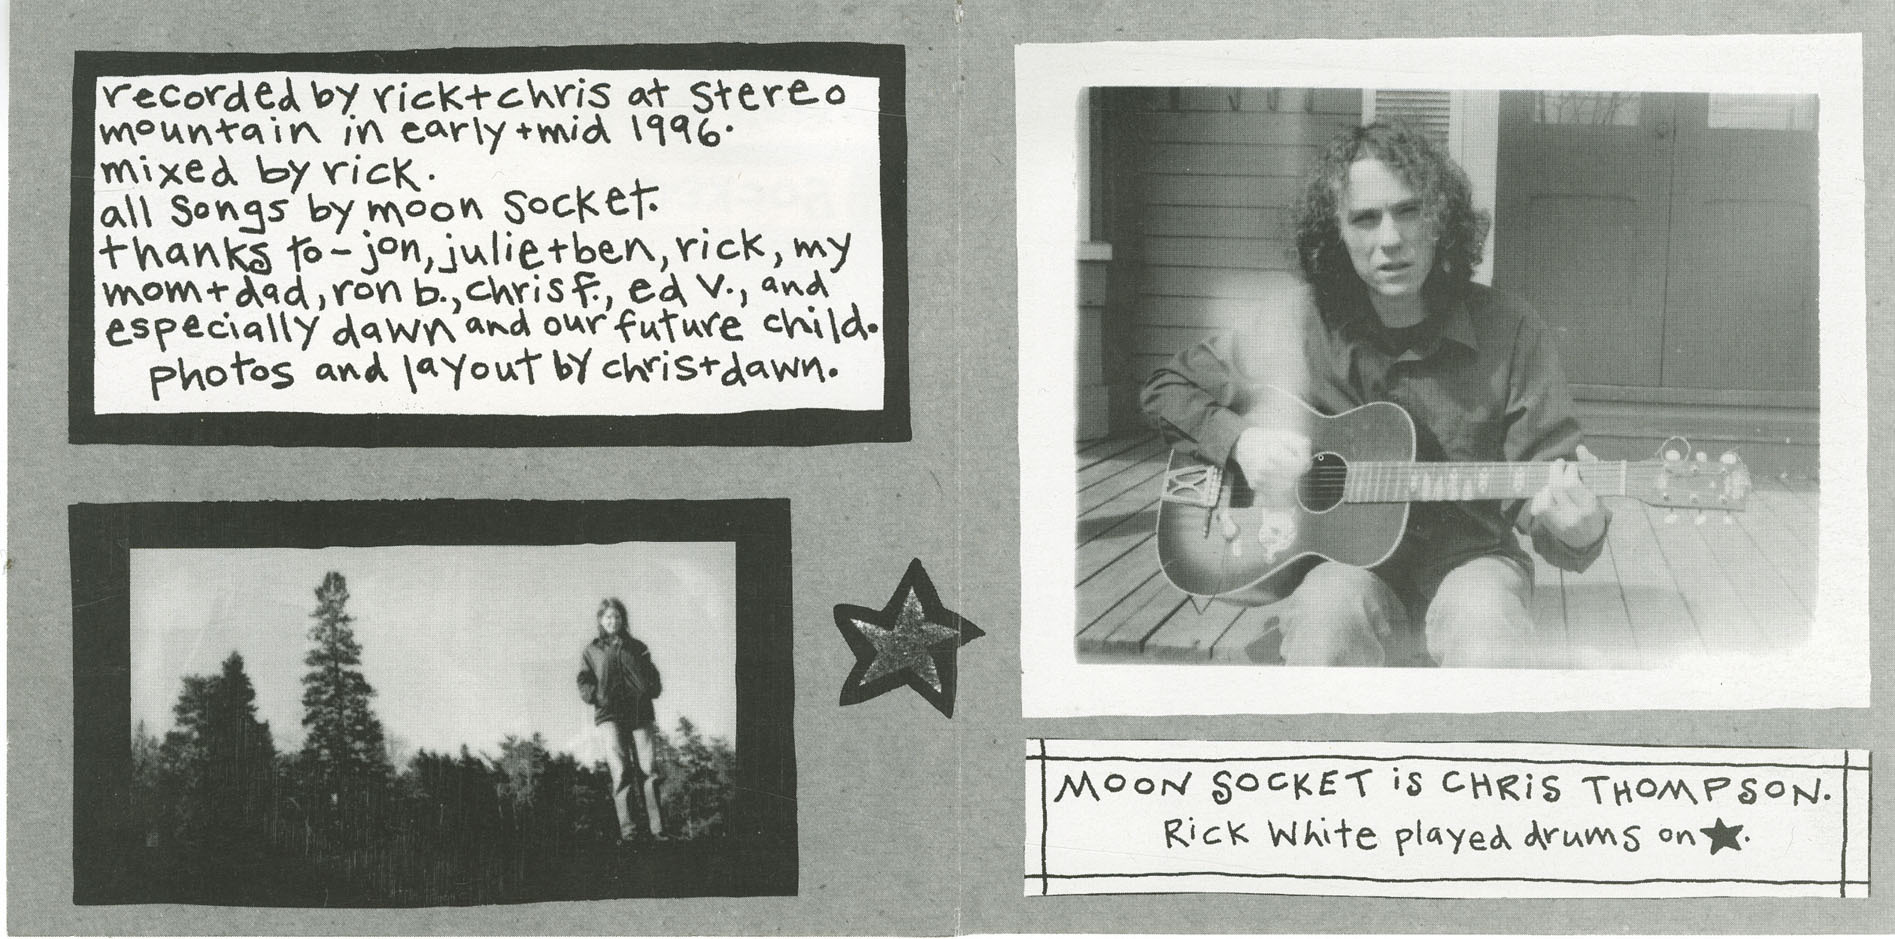 recorded by rick+chris at stereo
mountain in early+mid 1996.
mixed by rick.
all songs by moon socket.
thanks to-jon, julie+ben, rick, my
mom+dad, ron b., chris f., ed v., and
especially dawn and our future child.
photos and layout by chris+dawn.
MOON SOCKET iS CHRiS THOMPSON.
Rick White played drums on ★.